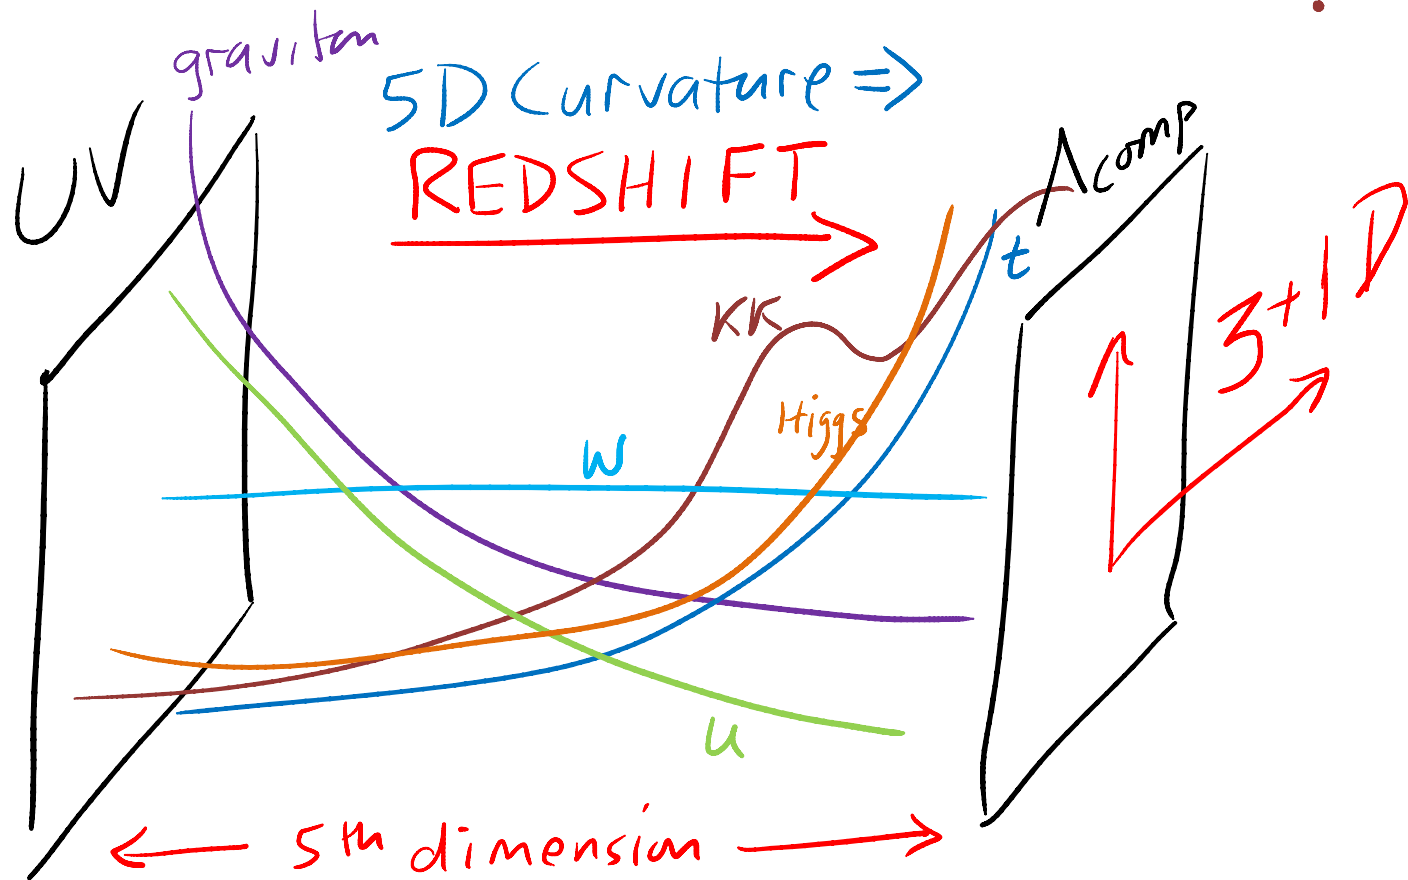 graviton
5D Curvature ⇒
REDSHIFT
UV
Λcomp
t
3+1D
KK
Higgs
W
u
5th dimension